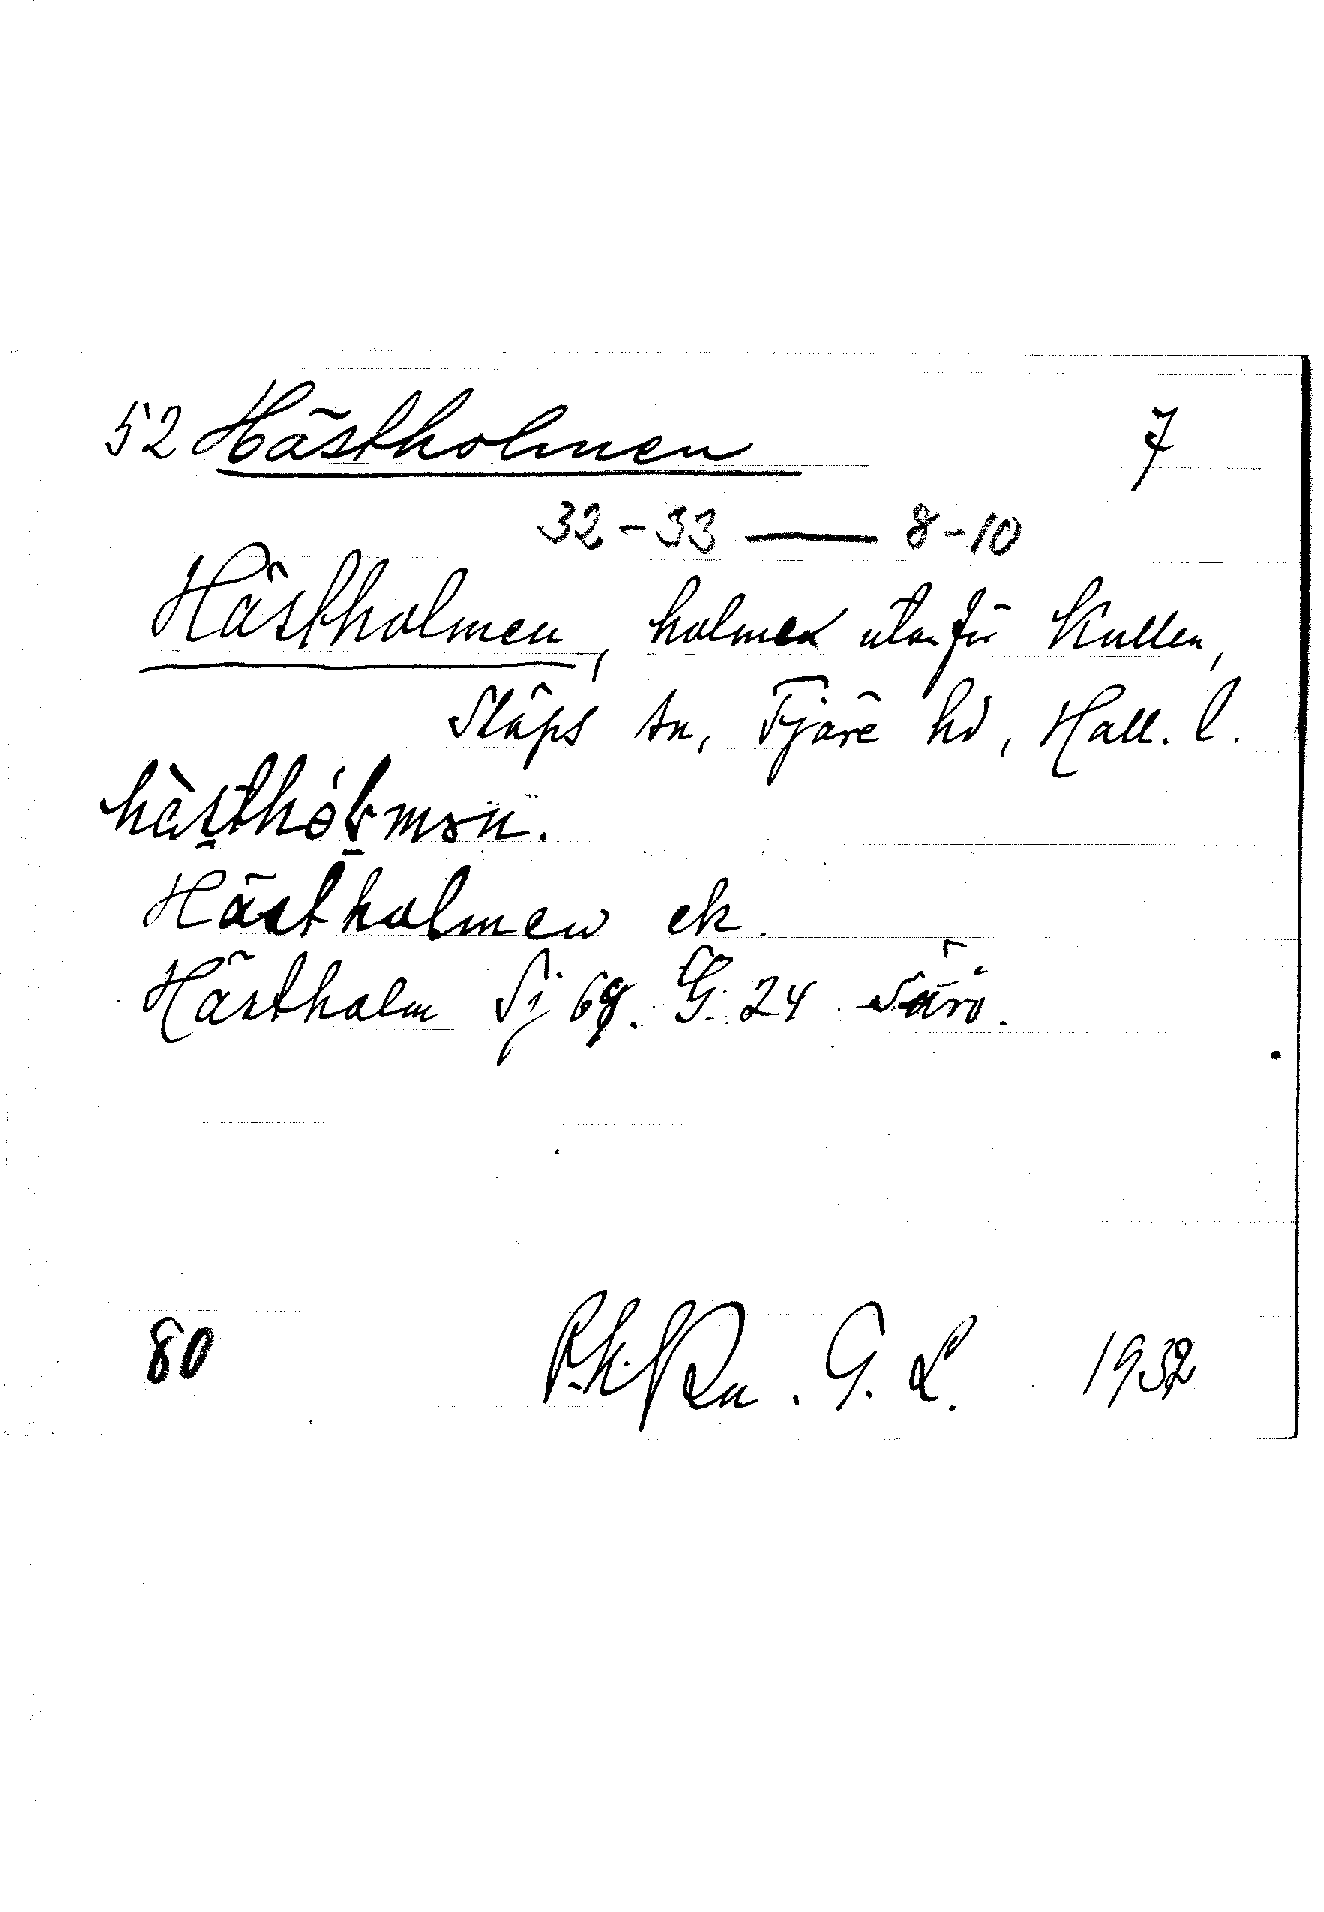 52 Hästholmen 7
32-33 — 8-10
Hästholmen, holmen utanför Kullen,
Släps sn, Fjäre hd, Hall. l.
hästhólmən.
Hästholmen ek.
Hästholm Sj 69. G. 24 Särö.
80 G. L. 1932